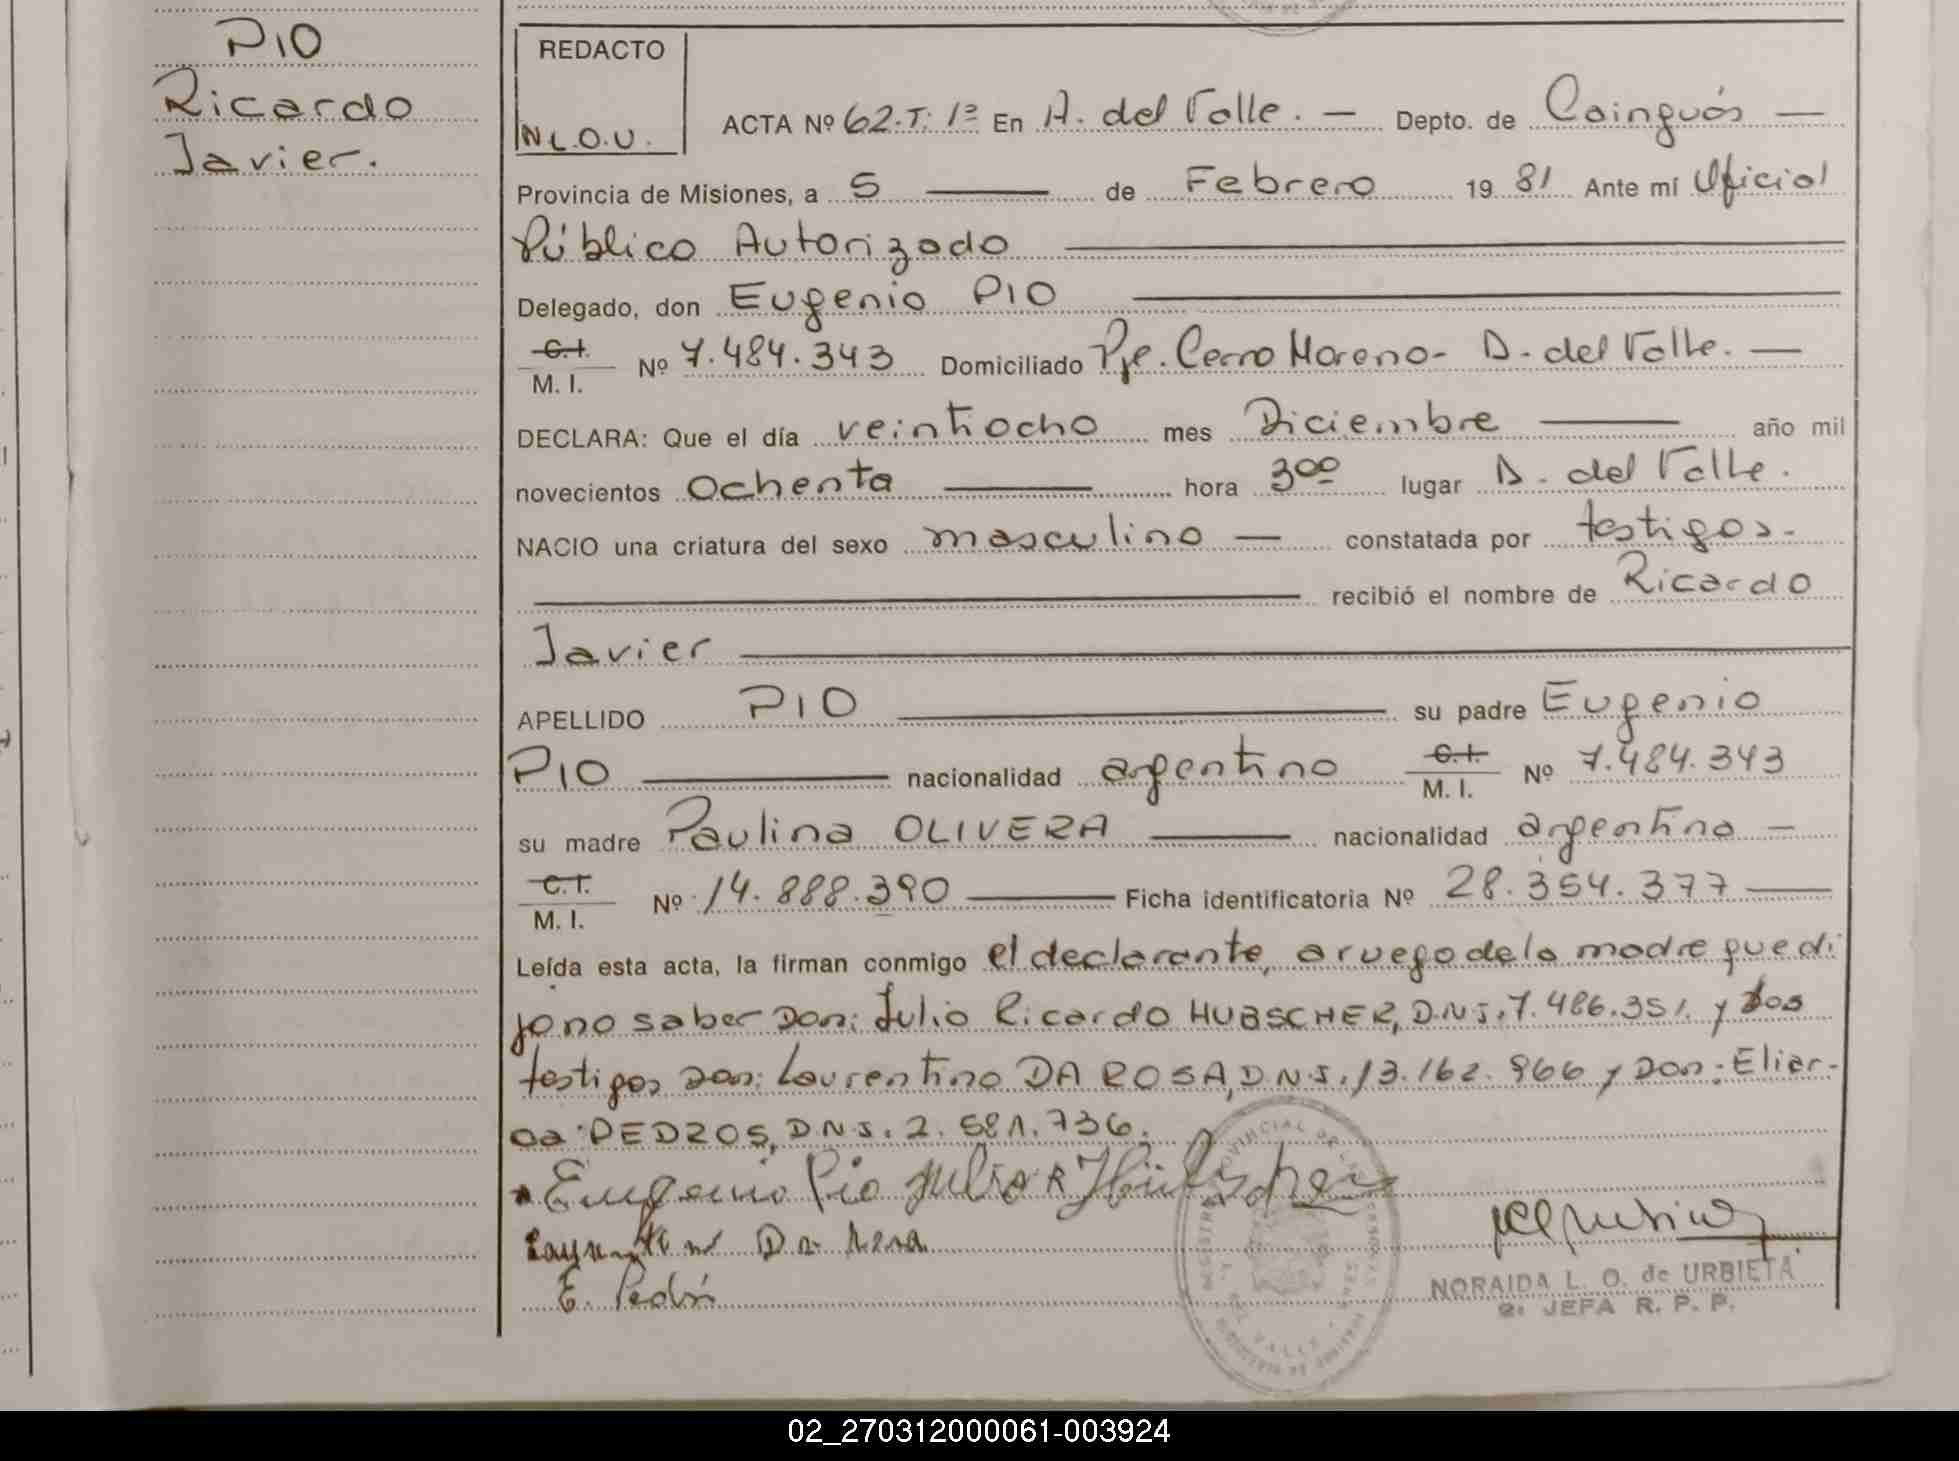 PIO
Ricardo
Javier.
REDACTO
N L.O.U.
ACTA Nº 62.T: 1ª En A. del Valle. — Depto. de Cainguás —
Provincia de Misiones, a 5 — de Febrero 19 81 Ante mí Oficial
Público Autorizado
Delegado, don Eugenio PIO
C.I. / M. I. Nº 7.484.343 Domiciliado Pje. Cerro Moreno - A. del Valle. —
DECLARA: Que el día veintiocho mes Diciembre — año mil
novecientos ochenta — hora 3 00 lugar A. del Valle.
NACIO una criatura del sexo masculino — constatada por testigos.
— recibió el nombre de Ricardo
Javier —
APELLIDO PIO — su padre Eugenio
PIO — nacionalidad argentino C.I. / M. I. Nº 7.484.343
su madre Paulina OLIVERA — nacionalidad argentina —
C.I. / M. I. Nº 14.888.390 — Ficha identificatoria Nº 28.354.377 —
Leída esta acta, la firman conmigo el declarante, a ruego de la madre que di
jo no saber Don: Julio Ricardo HUBSCHER, D.N.I. 7.486.351. y dos
testigos Don: Laurentino DA ROSA, D.N.I. 13.162.966 y Don: Elier-
PEDZOS, D.N.I. 2.581.736.
Eugenio Pio Julio R Hübscher
Da Rosa
E.
NORAIDA L. O. de URBIETA
JEFA R. P. P.
02_270312000061-003924